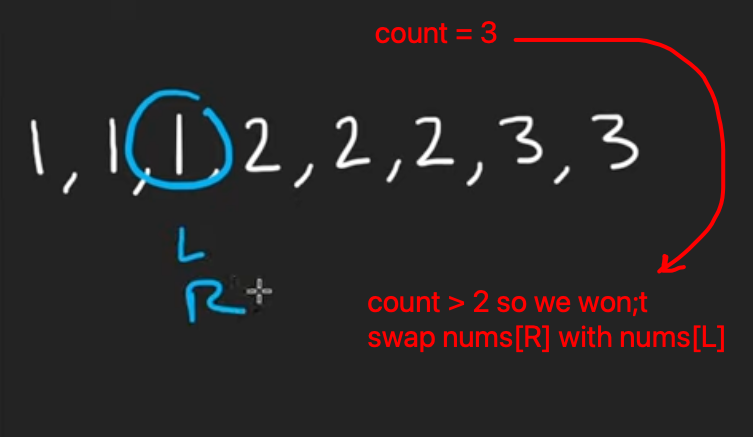 count = 3
1, 1, 1, 2, 2, 2, 3, 3
L
R
count > 2 so we won;t
swap nums[R] with nums[L]